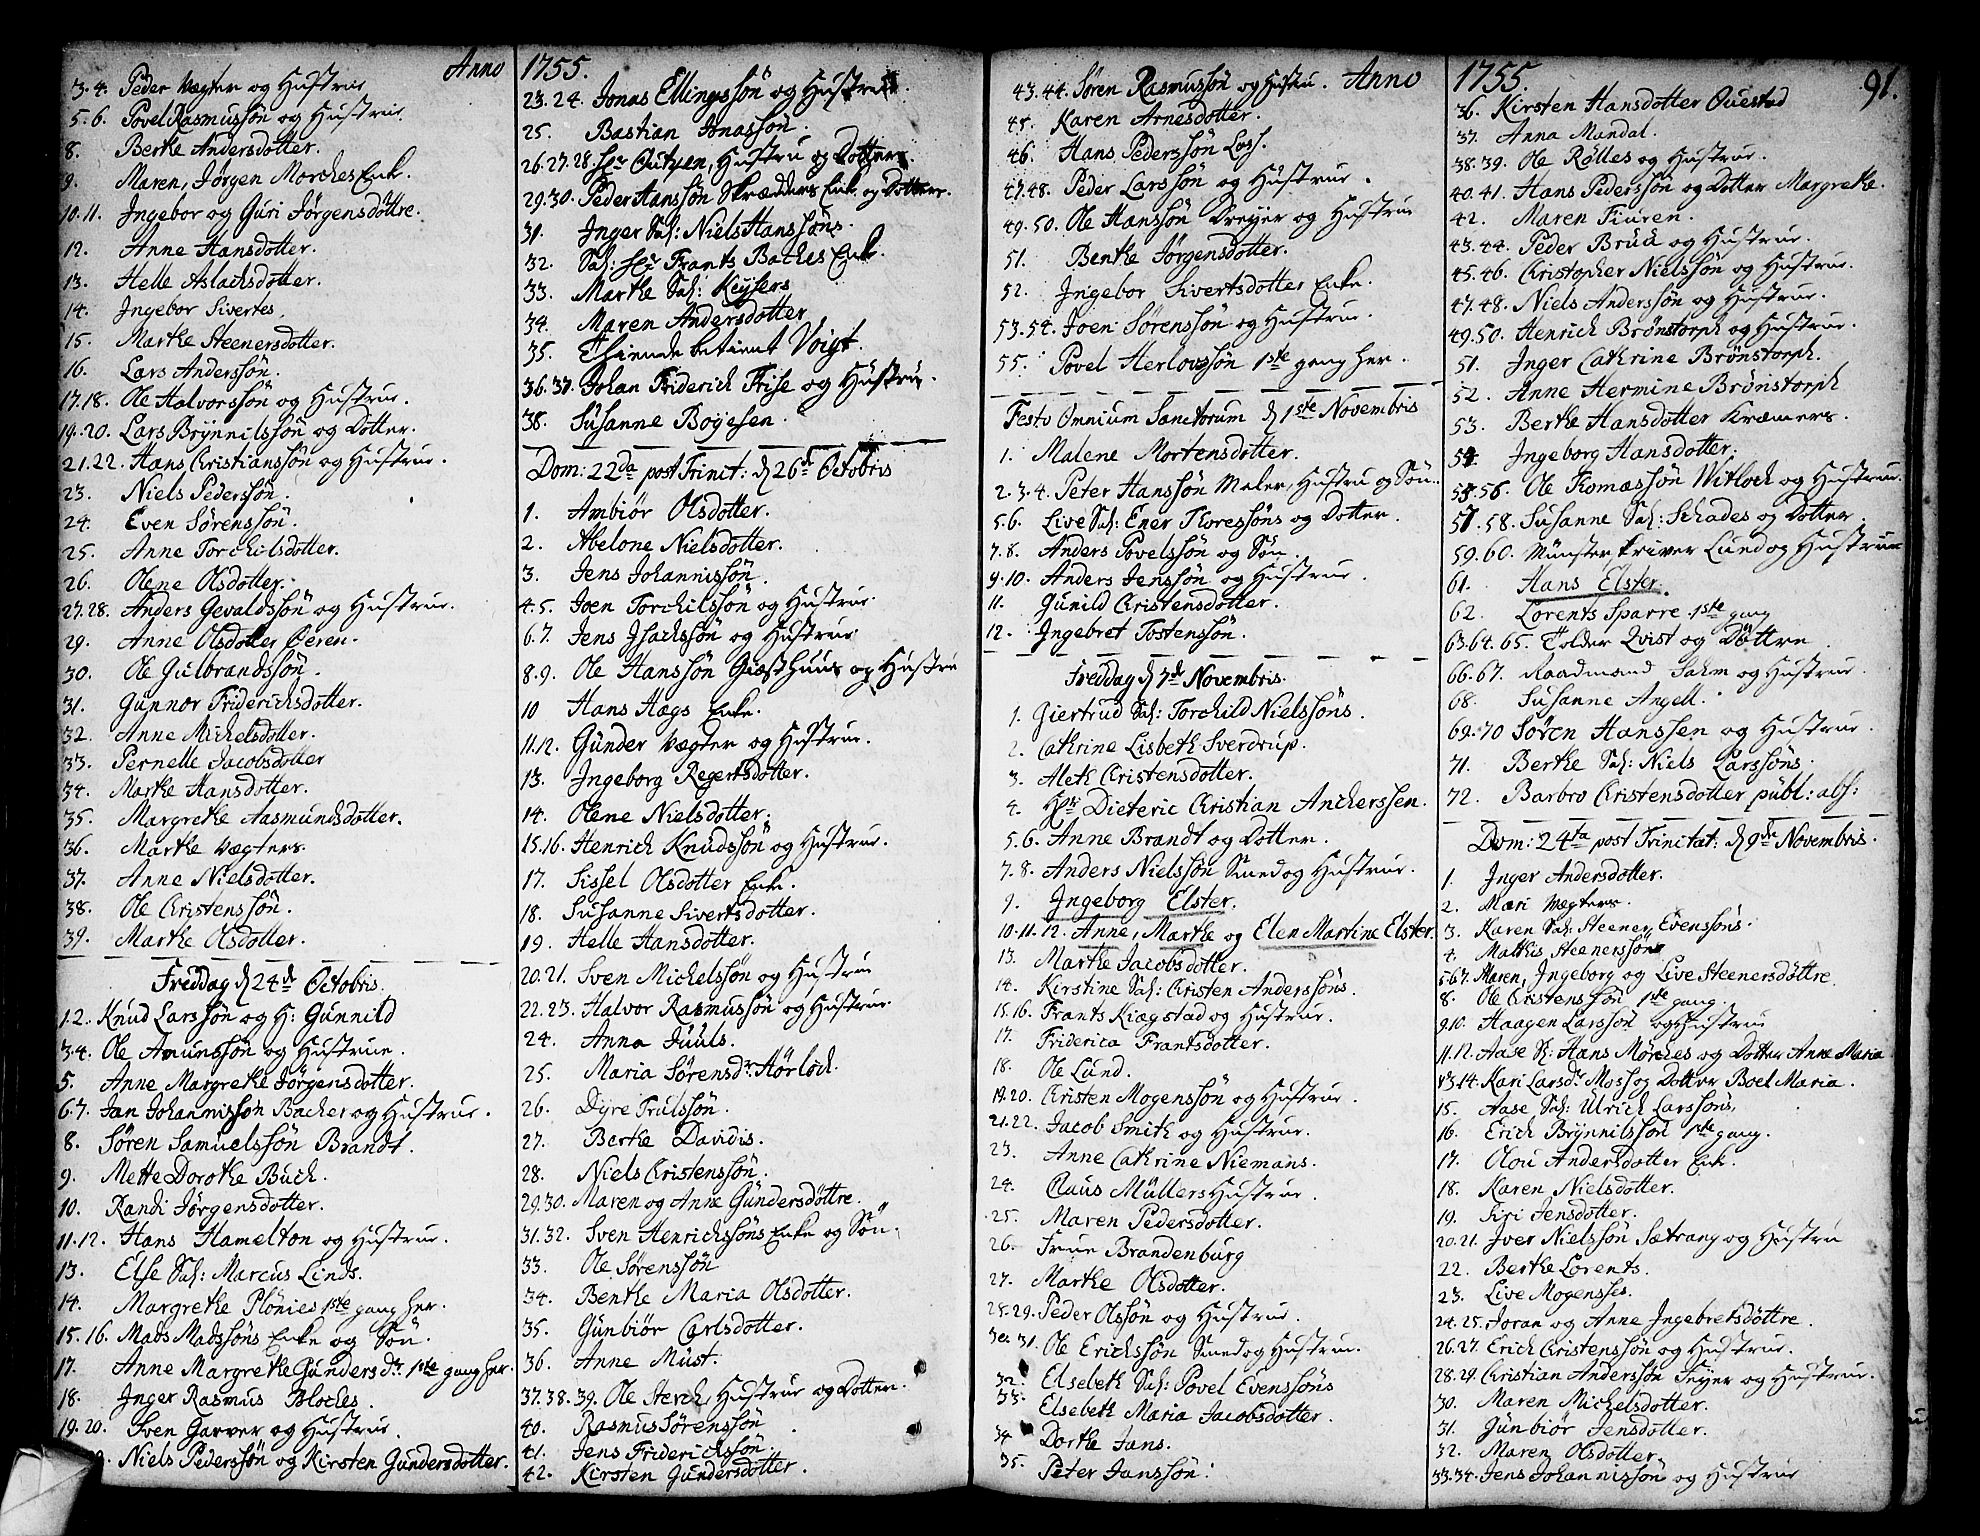 Anno
3.4. Peder Vægter og Hustrue
5.6. Povel Rasmussön og Hustrue.
8. Berthe Andersdotter.
9. Maren, Jörgen Morches Enke.
10.11. Ingebor og Guri Jörgensdöttre.
12. Anne Hansdotter.
13. Helle Aslachsdotter.
14. Ingebor Sivertes.
15. Marthe Steenersdotter.
16. Lars Andersön.
17.18. Ole Halvorssön og Hustrue.
19.20. Lars Brÿnnilssön og Dotter.
21.22. Hans Christianssön og Hustrue.
23. Niels Pederssön.
24. Even Sörenssön.
25. Anne Torchilsdotter.
26. Olene Olsdotter.
27.28. Anders Gevaldssön og Hustrue.
29. Anne Olsdotter Beren.
30. Ole Gulbrandssön.
31. Gunnor Friderichsdotter.
32. Anne Michelsdotter.
33. Pernelle Jacobsdotter
34. Marthe Hansdotter.
35. Margrethe Aasmundsdotter.
36. Marthe Vægters.
37. Anne Nielsdotter.
38. Ole Christenssön.
39. Marthe Olsdotter.
Freddag d 24de Octobris.
1.2. Knud Larssön og H: Gunnild
3.4. Ole Amunssön og Hustrue.
5. Anne Margrethe Jörgensdotter.
6.7. Jan Johannissön Bacher og Hustrue.
8. Sören Samuelssön Brandt.
9. Mette Dorothe Buch.
10. Randi Jörgensdotter.
11.12. Hans Hamelton og Hustrue.
13. Else Sal: Marcus Linds.
14. Margrethe Plönies 1ste gang her.
15.16. Mads Madssöns Enke og Sön.
17. Anne Margrethe Gundersdr. 1ste gang her.
18. Inger Rasmus Bloches.
19.20. Sven Garver og Hustrue.
Niels Pederssön og Kirsten Gundersdotter.
1755.
23.24. Jonas Ellingssön og Hustrue.
25. Bastian Jonassön.
26.27.28. Hustru og Dotter.
29.30. Peder Hanssön Skrædders Enke og Dotter.
31. Inger Sal: Niels Hanssöns.
32. Sal: Hr Frants Baches Enke.
33. Marthe Sal: Keÿsers
34. Maren Andersdotter
35. betient Voigt.
36.37. Johan Friderich Frise og Hustrue.
38. Susanne Boyesen.
Dom: 22da post Trinit: d 26de Octobris
1. Ambiör Olsdotter.
2. Abelone Nielsdotter.
3. Jens Johannissön.
4.5. Joen Torchilssön og Hustrue.
6.7. Jens Isachssön og Hustrue.
8.9. Ole Hanssön Giæsthuus og Hustru
10 Hans Hægs Enke.
11.12. Gunder Vægter og Hustrue.
13. Ingeborg Regertsdotter.
14. Olene Nielsdotter.
15.16. Henrich Knudssön og Hustrue.
17. Sissel Olsdotter Enke.
18. Susanne Sivertsdotter.
19. Helle Hansdotter.
20.21. Sven Michelssön og Hustrue
22.23. Halvor Rasmussön og Hustrue.
24. Anna Juuls.
25. Maria Sörensdr. Hörloch.
26. Dÿre Trulssön.
27. Berthe Davidis.
28. Niels Christenssön.
29.30. Maren og Anne Gundersdöttre.
31.32. Sven Henrichssöns Enke og Sön.
33. Ole Sörenssön
34. Benthe Maria Olsdotter.
35. Gunbiör Carlsdotter.
36. Anne Must.
37.38.39. Ole Jerch, Hustrue og Dotter.
40. Rasmus Sörenssön
41. Jens Friderichssön.
42. Kirsten Gundersdotter.
Anno
43.44. Sören Rasmussön og Hustru.
45. Karen Arnesdotter.
46. Hans Pederssön Loss.
47.48. Peder Larssön og Hustrue.
49.50. Ole Hanssön Dreyer og Hustrue
51. Benthe Jörgensdotter.
52. Ingebor Sivertsdotter Enke.
53.54. Joen Sörenssön og Hustrue.
55. Povel Herlovssön 1ste gang her.
Festo Omnium Sanctorum d 1ste Novembris
1. Malene Mortensdotter.
2.3.4. Peter Hanssön Maler, Hustru og Sön.
5.6. Live Sal: Ener Thoressöns og Dotter.
7.8. Anders Povelssön og Sön.
9.10. Anders Jenssön og Hustrue.
11. Gunild Christensdotter.
12. Ingebret Tostenssön.
Freddag d 7de Novembris.
1. Giertrud Sal: Torchild Nielssöns.
2. Cathrine Lisbeth Sverdrup.
3. Aleth Christensdotter.
4. Hr Dieteric Christian Anchersen.
5.6. Anne Brandt og Dotter.
7.8. Anders Nielssön Smed og Hustrue.
9. Ingeborg Elster.
10.11.12. Anne, Marthe og Elen Martine Elster.
13. Marthe Jacobsdotter.
14. Kirstine Sal: Christen Anderssöns.
15.16. Frants Kiægstad og Hustrue.
17. Friderica Frantsdotter.
18. Ole Lund.
19.20. Christen Mogenssön og Hustrue.
21.22. Jacob Smith og Hustrue.
23. Anne Cathrine Niemans.
24. Claus Müllers Hustrue.
25. Maren Pedersdotter.
26. Frue Brandenburg
27. Marthe Olsdotter.
28.29. Peder Olssön og Hustrue.
30 31. Ole Erichssön Smed og Hustrue.
32. Elsebeth Sal: Povel Evenssöns
33. Elsebeth Maria Jacobsdotter.
34 Dorthe Jans.
35. Peter Janssön.
1755.
91.
36. Kirsten Hansdotter Ouestad
37. Anna Mandal.
38.39. Ole Rölles og Hustrue.
40.41. Hans Pederssön og Dotter Margrethe.
42. Maren Fiuren.
43.44. Peder Bruu og Hustrue.
45.46. Christopher Nielssön og Hustrue.
47.48. Niels Anderssön og Hustrue.
49.50. Henrich Brönstorph og Hustrue.
51. Inger Cathrine Brönstorph.
52. Anne Hermine Brönstorph
53. Berthe Hansdotter Kræmers.
54. Ingeborg Hansdotter.
55.56. Ole Thomæssön Witloch og Hustrue.
57.58. Susanne Sal: Schades og Dotter.
59.60. Münsterskriver Lund og Hustrue
61. Hans Elster.
62. Lorents Sparre 1ste gang
63.64.65. Tolder Qvist og Döttre.
66.67. Raadmand Sahm og Hustrue.
68. Susanne Angell.
69.70 Sören Hanssen og Hustrue.
71. Berthe Sal: Niels Larssöns.
72. Barbro Christensdotter publ: abs:
Dom: 24ta post Trinitat: d 9de Novembris.
1. Inger Andersdotter.
2. Mari Vægters.
3. Karen Sal: Steener Evenssöns.
4. Mathis Steenerssön
5.6.7. Maren, Ingeborg og Live Steenersdöttre.
8. Ole Christenssön 1ste gang.
9.10. Haagen Larssön og Hustrue
11.12. Aase Sl: Hans Mörches og Dotter Anne Maria.
13.14. Kari Larsdr. Moss og Dotter Boel Maria.
15. Aase Sal: Ulrich Larssöns.
16. Erich Brÿnnilssön 1ste gang.
17. Olou Andersdotter Enke.
18. Karen Nielsdotter.
19. Siri Jensdotter.
20.21. Iver Nielssön Sætrang og Hustru
22. Berthe Lorents.
23. Live Mogenses.
24.25. Joran og Anne Ingebretsdöttre.
26.27. Erich Christenssön og Hustrue.
28.29. Christian Anderssön Feÿer og Hustrue.
30. Maren Michelsdotter.
31. Gunbiör Jensdotter.
32. Maren Olsdotter
33.34. Jens Johannissön og Hustrue